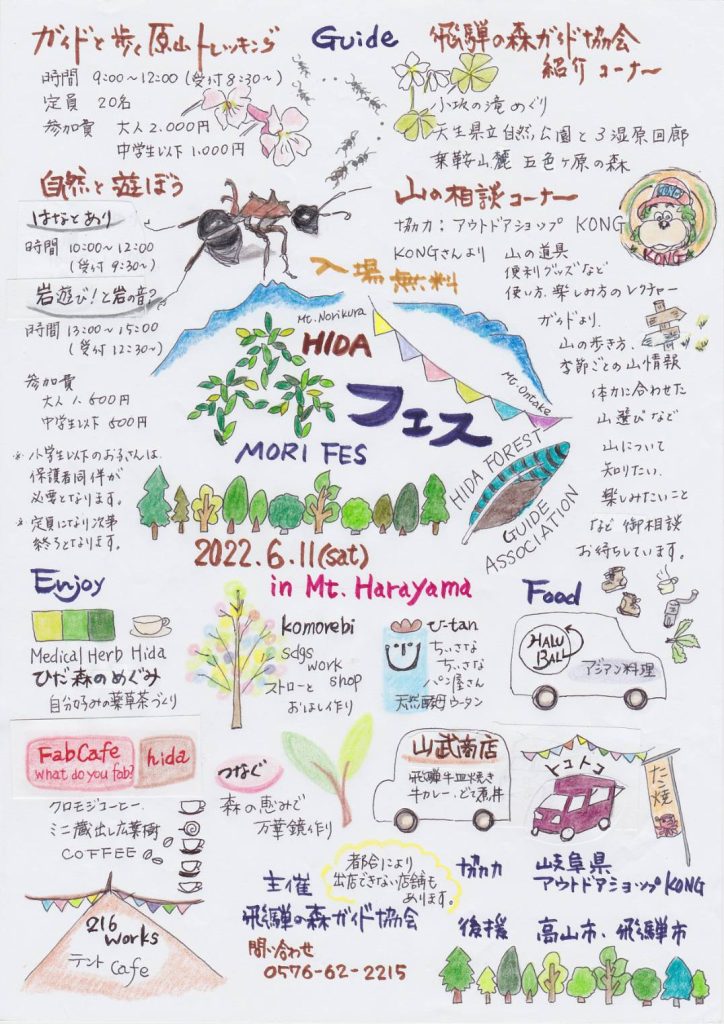 ガイドと歩く原山トレッキング
時間 9:00~12:00 (受付8:30~)
定員 20名
参加費 大人 2.000円
中学生以下 1.000円
Guide
飛騨の森ガイド協会
紹介コーナー
小坂の滝めぐり
天生県立自然公園と3湿原回廊
乗鞍山麓 五色ヶ原の森
自然と遊ぼう
はなとあり
時間 10:00~12:00
(受付 9:30~)
岩遊び!と岩の音?
時間 13:00~15:00
(受付 12:30~)
参加費
大人 1.500円
中学生以下 500円
※小学生以下のお子さんは、
保護者同伴が
必要となります。
※定員になり次第
終了となります。
山の相談コーナー
協力:アウトドアショップ KONG
KONG
KONG
KONGさんより 山の道具
便利グッズなど
使い方、楽しみ方のレクチャー
ガイドより、
山の歩き方、
季節ごとの山情報
体力に合わせた
山選びなど
山について
知りたい、
楽しみたいこと
など御相談
お待ちしています。
入場無料
Mt.Norikura
HIDA
Mt.Ontake
フェス
MORI FES
HIDA FOREST
GUIDE
ASSOCIATION
2022.6.11(sat)
in Mt. Harayama
Enjoy
Medical Herb Hida
ひだ森のめぐみ
自分好みの薬草茶づくり
komorebi
sdgs
work
shop
ストローと
おはし作り
U-tan
ちいさな
ちいさな
パン屋さん
天然酵母ウータン
Food
HALU
BALL
アジアン料理
FabCafe
what do you fab?
hida
クロモジコーヒー、
ミニ蔵出し広葉樹
COFFEE
つなぐ
森の恵みで
万華鏡作り
山武商店
飛騨牛皿焼き
牛カレー、どて煮丼
トコトコ
たこ焼
216
works
テント Cafe
都合により
出店できない店舗も
あります。
主催
飛騨の森ガイド協会
問い合わせ
0576-62-2215
協力 岐阜県
アウトドアショップKONG
後援 高山市、飛騨市